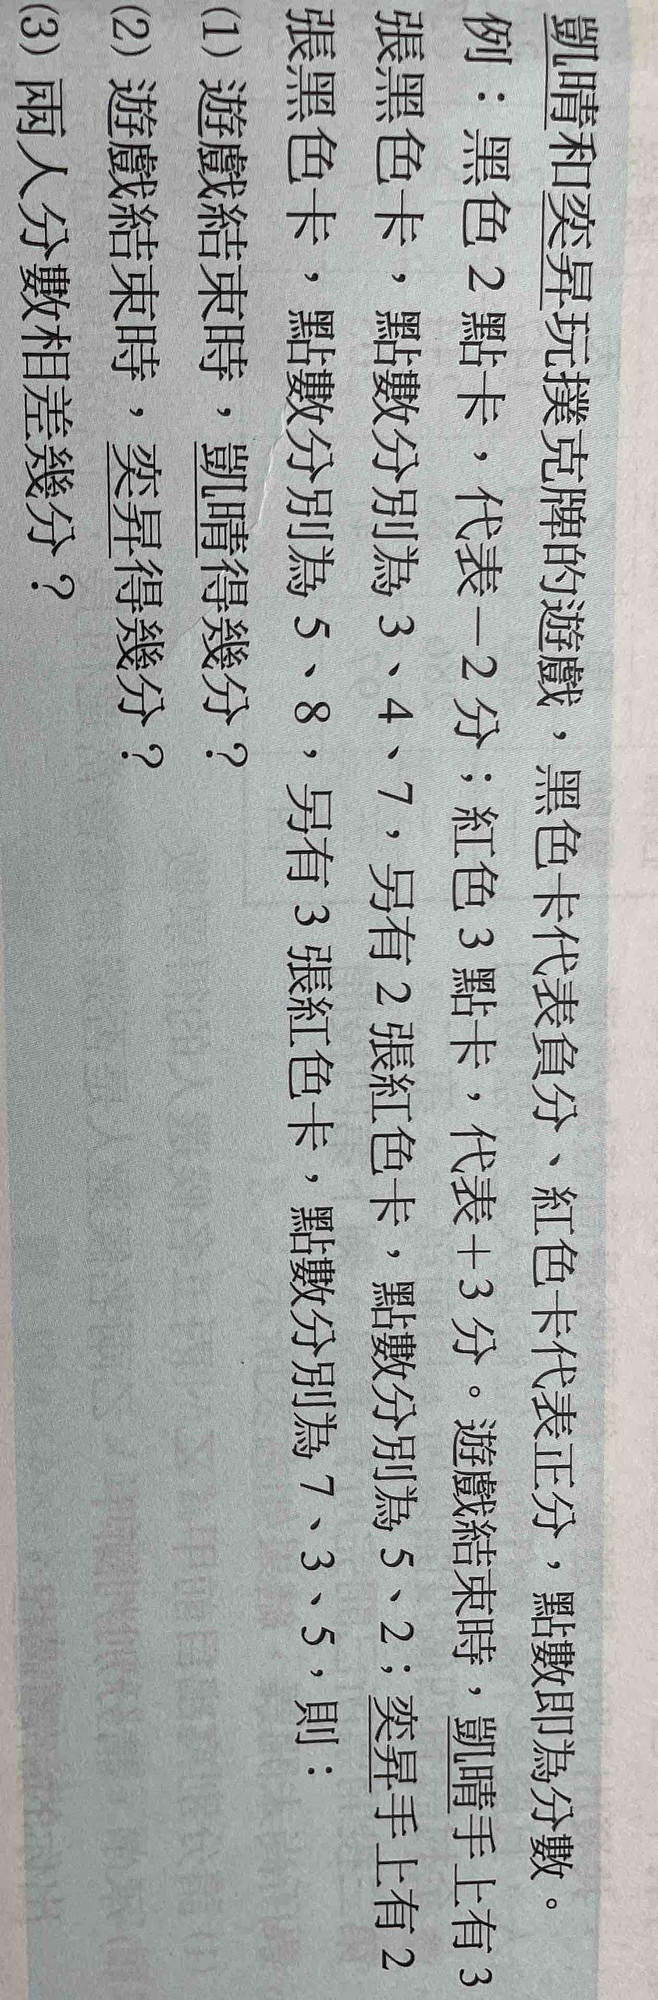 凱晴和奕昇玩撲克牌的遊戲，黑色卡代表負分、紅色卡代表正分，點數即為分數。
例：黑色2點卡，代表－2分；紅色3點卡，代表＋3分。遊戲結束時，凱晴手上有3
張黑色卡，點數分別為3、4、7，另有2張紅色卡，點數分別為5、2；奕昇手上有2
張黑色卡，點數分別為5、8，另有3張紅色卡，點數分別為7、3、5，則：
(1) 遊戲結束時，凱晴得幾分？
(2) 遊戲結束時，奕昇得幾分？
(3) 兩人分數相差幾分？